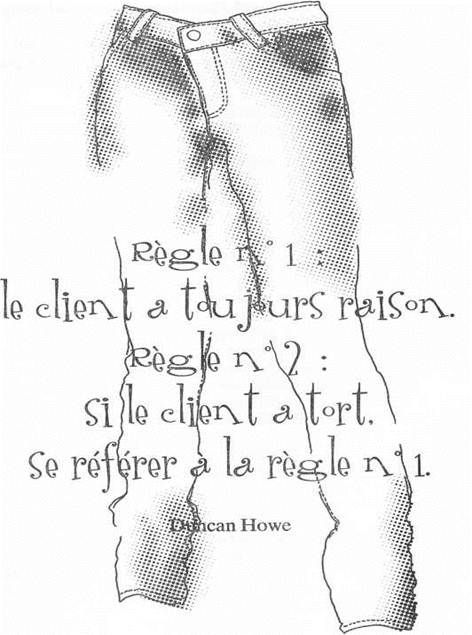 Règle n° 1 :
le client a toujours raison.
Règle n° 2 :
Si le client a tort,
se référer à la règle n° 1.
Duncan Howe